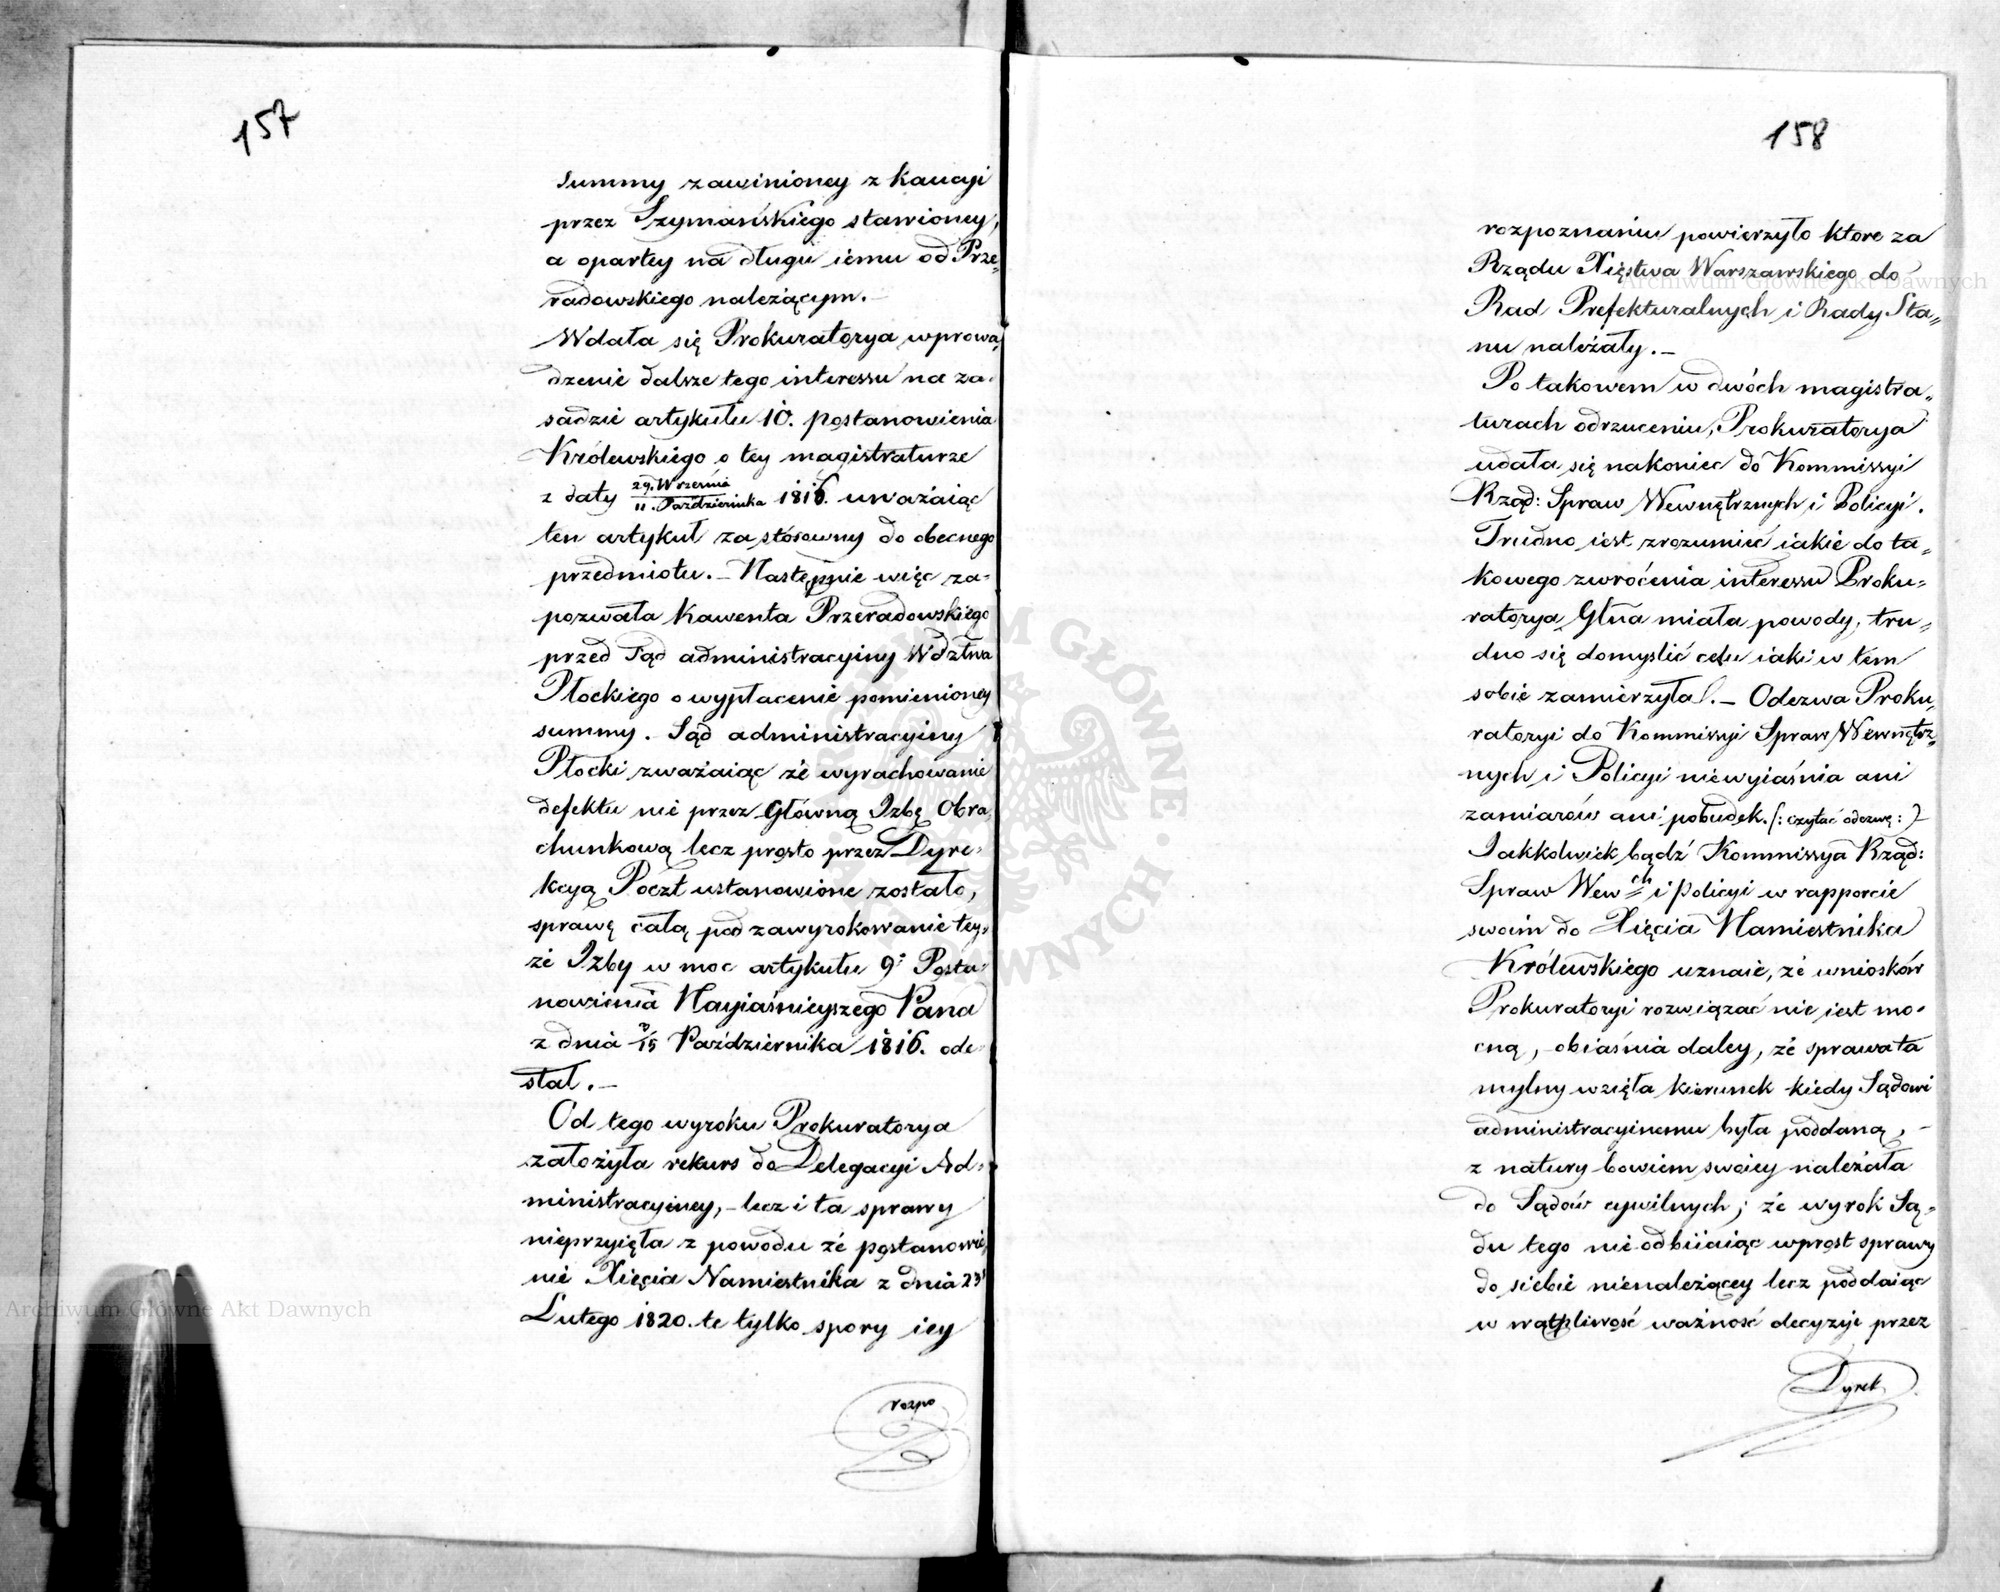 157
summy zawinioney z kaucyi
przez Szymańskiego stawioney,
a opartey na długu iemu od Prze=
radowskiego należącym. —
Wdała się Prokuratorya wprowa=
dzenie dalsze tego interessu na za=
sadzie artykułu 10. postanowienia
Królewskiego o tey magistraturze
z daty 29. Września / 11. Października 1816. uważaiąc
ten artykuł za stósowny do obecnego
przedmiotu. — Następnie więc za=
pozwała Kawenta Przeradowskiego
przed Sąd administracyiny Wdztwa
Płockiego o wypłacenie pomienioney
summy. Sąd administracyiny
Płocki zważaiąc że wyrachowanie
defektu nie przez Główną Izbę Obra
chunkową lecz prosto przez Dyre=
kcyą Poczt ustanowione zostało,
sprawę całą pod zawyrokowanie tey=
że Izby w moc artykułu 9. Posta=
nowienia Nayiaśnieyszego Pana
z dnia 3/15 Października 1816. ode=
słał. —
Od tego wyroku Prokuratorya
założyła rekurs do Delegacyi Ad=
ministracyiney, — lecz i ta sprawy
nieprzyięła z powodu że postanowie=
nie Xięcia Namiestnika z dnia 23
Lutego 1820. te tylko spory iey
rozpo
158
rozpoznaniu powierzyło które za
Rządu Xięstwa Warszawskiego do
Rad Prefekturalnych i Rady Sta=
nu należały. —
Po takowem w dwóch magistra=
turach odrzuceniu, Prokuratorya
udała się nakoniec do Kommissyi
Rząd: Spraw Wewnętrznych i Policyi.
Trudno iest zrozumieć iakie do ta=
kowego zwrócenia interessu Proku=
ratorya Głna miała powody, tru=
dno się domyslić celu iaki w tem
sobie zamierzyła. — Odezwa Proku=
ratoryi do Kommissyi Spraw Wewnętrz=
nych i Policyi niewyiaśnia ani
zamiarów ani pobudek. (: czytać odezwę :)
Jakkolwiek bądź Kommissya Rząd:
Spraw Wewch i Policyi w rapporcie
swoim do Xięcia Namiestnika
Królewskiego uznaie, że wniosków
Prokuratoryi rozwiązać nie iest mo=
cną, — obiaśnia daley, że sprawa ta
mylny wzięła kierunek kiedy Sądowi
administracyinemu była poddaną, —
z natury bowiem swoiey należała
do Sądów cywilnych; że wyrok Są=
du tego nie odbiiaiąc wprost sprawy
do siebie nienależącey lecz poddaiąc
w wątpliwość ważność decyzyi przez
Dyrek
Archiwum Główne Akt Dawnych
Archiwum Główne Akt Dawnych
ARCHIWUM GŁÓWNE AKT DAWNYCH